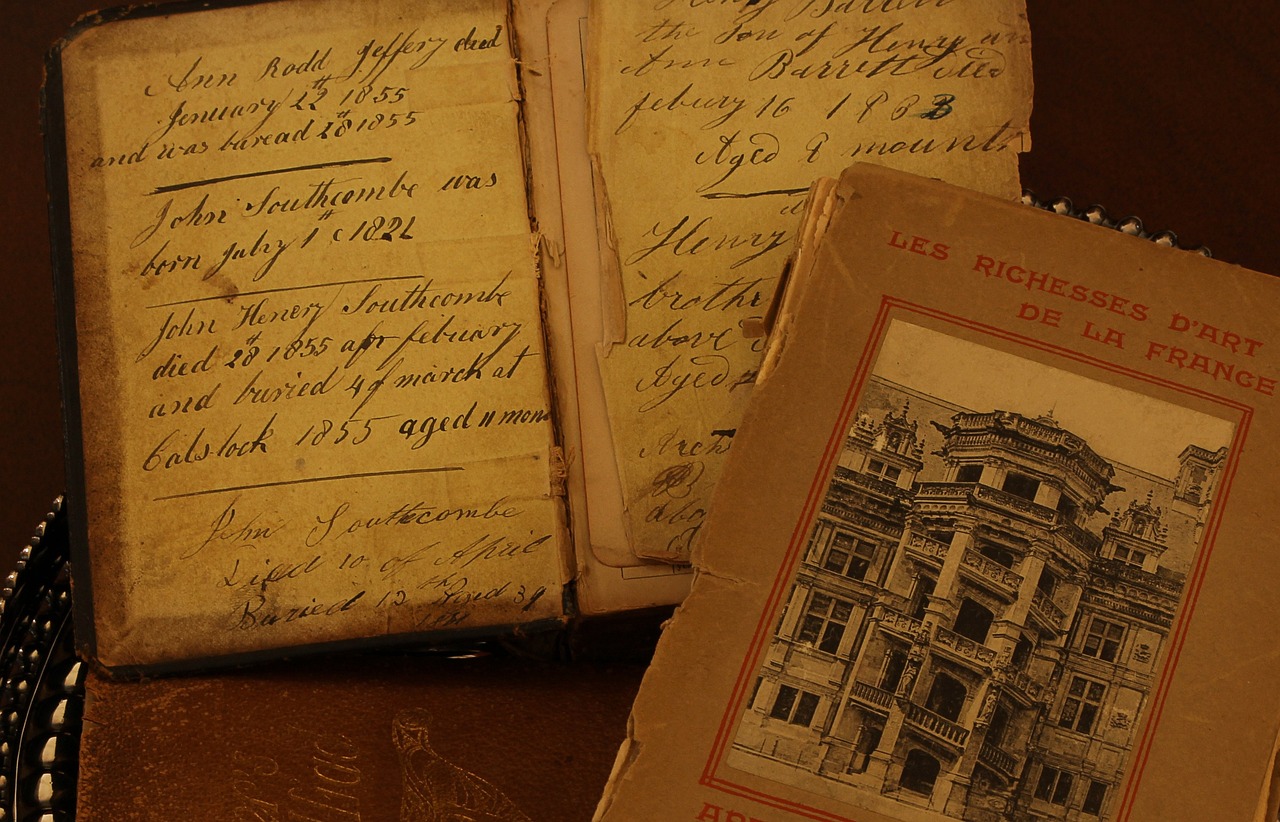 Ann Rodd Jeffery died
Jenuary 22th 1855
and was buread 28 1855
John Southcombe was
born July 1th 1821
John Henery Southcombe
died 28th 1855 apr febuary
and buried 4 of march at
Calstock 1855 aged 11 mon
John Southcombe
Died 10th of April
Buried 13 Aged 39
Henry Barrett
the Son of Henry an
Ann Barrett died
febury 16 1883
Aged 8 mounts
Henry
brothe
above
Aged
abo
LES RICHESSES D'ART
DE LA FRANCE